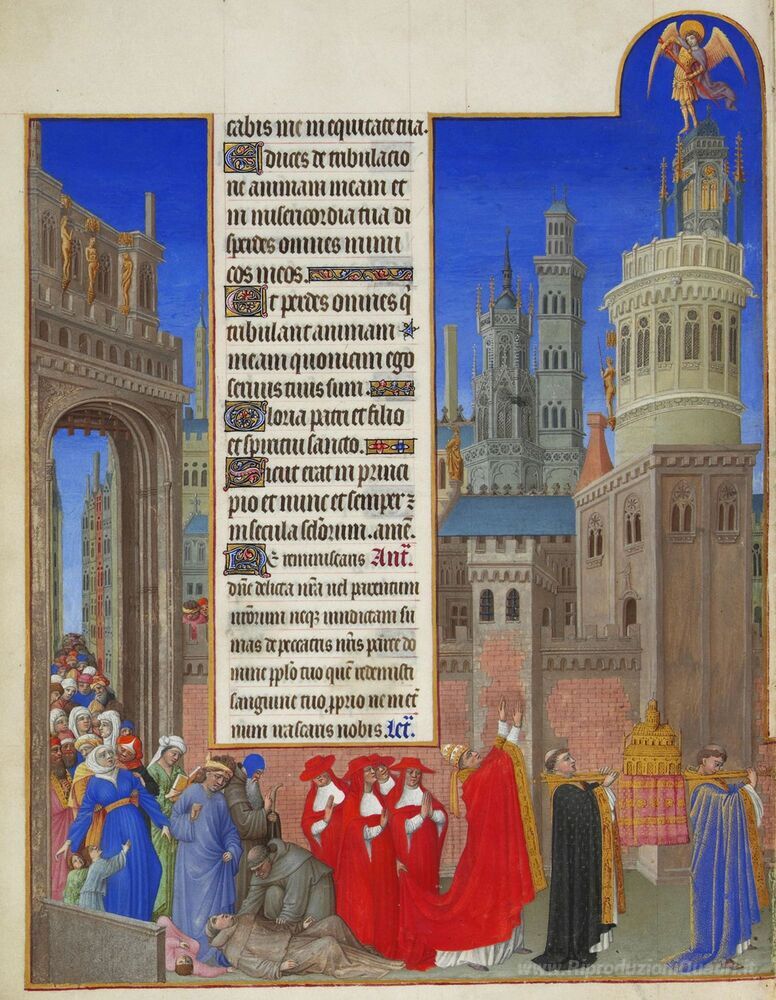 cabis me in equitate tua.
Educes de tribulacio
ne animam meam et
in misericordia tua di
sperdes omnes inimi
cos meos.
Et perdes omnes q̄
tribulant animam
meam quoniam ego
servus tuus sum.
Gloria patri et filio
et spiritui sancto.
Sicut erat in princi
pio et nunc et semper ⁊
in secula sclōrum. amē.
Ne reminiscaris Ant̄.
dn̄e delicta nr̄a vel parentum
nr̄orum neqꝫ vindictam su
mas de peccatis nr̄is parce do
mine pplo tuo quē redemisti
sanguine tuo pprio ne in et
num irascaris nobis. Let̄.
www.RiproduzioniQuadri.it